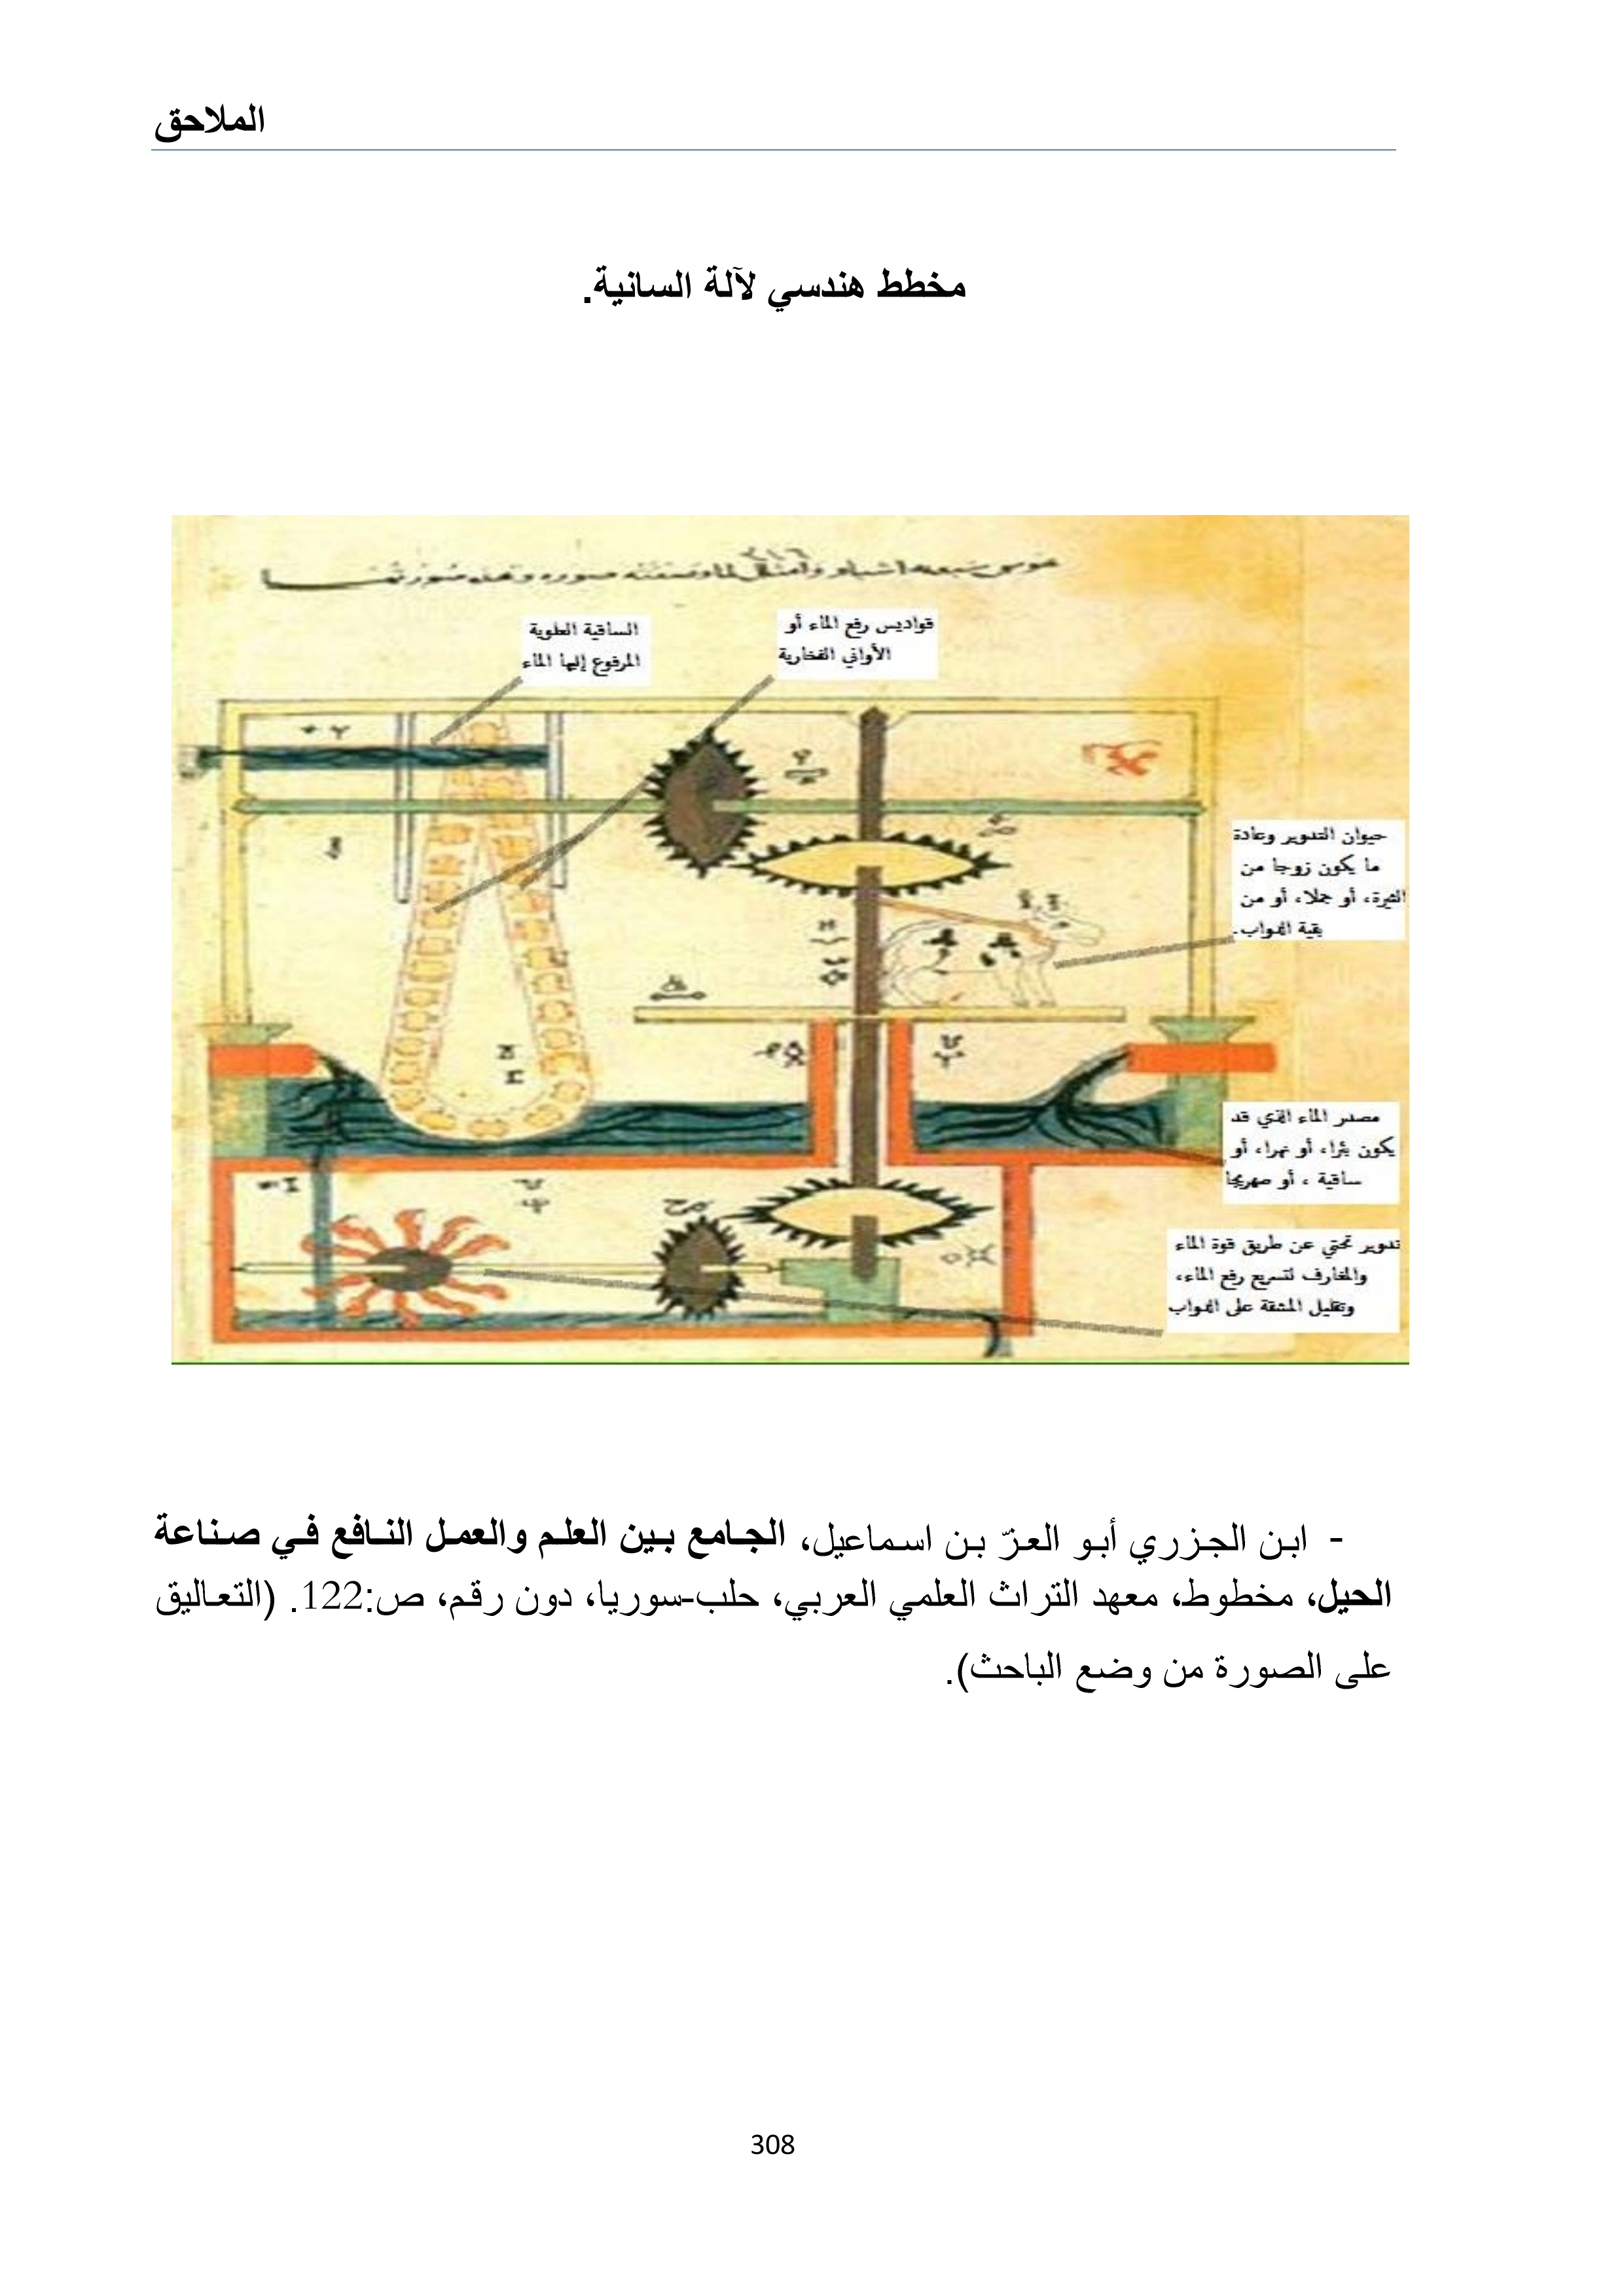 الملاحق
مخطط هندسي لآلة السانية.
الساقية العلوية
المرفوع إليها الماء
قواديس رفع الماء أو
الأواني الفخارية
حيوان التدوير وعادة
ما يكون زوجا من
الثيرة، أو جملا، أو من
بقية الدواب.
مصدر الماء الذي قد
يكون بئرا، أو نهرا، أو
ساقية ، أو صهريجا
تدوير تحتي عن طريق قوة الماء
والمغارف لتسريع رفع الماء،
وتقليل المشقة على الدواب
- ابن الجزري أبو العزّ بن اسماعيل، الجامع بين العلم والعمل النافع في صناعة
الحيل، مخطوط، معهد التراث العلمي العربي، حلب-سوريا، دون رقم، ص:122. (التعاليق
على الصورة من وضع الباحث).
308